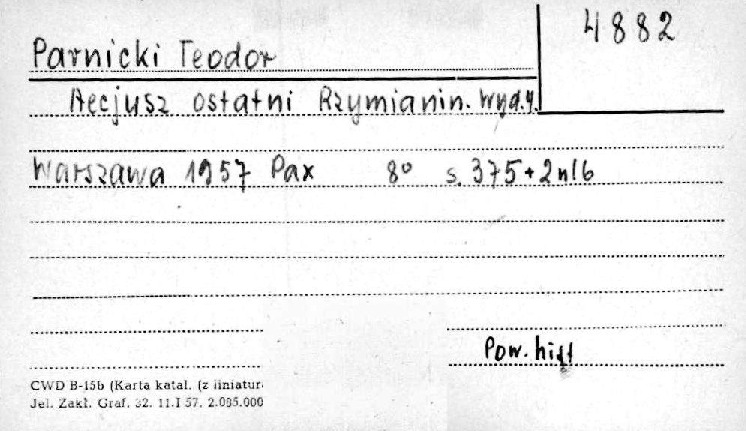 4882
Parnicki Teodor
Aecjusz ostatni Rzymianin. Wyd. 4.
Warszawa 1957 Pax 8° s. 375+2nlb
Pow. hist
CWD B-15b (Karta katal. (z liniatur
Jel. Zakł. Graf. 32. 11.I 57. 2.085.000